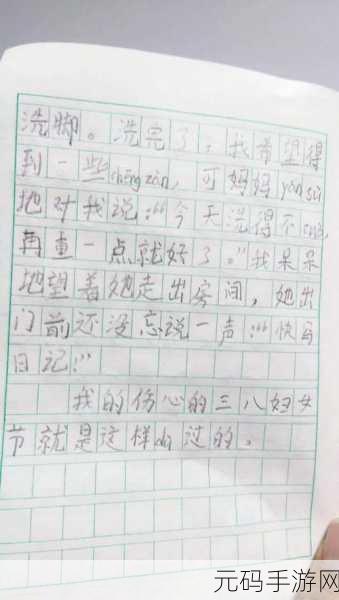 洗脚。洗完了，我希望得
到一些chēng zàn，可妈妈yán sù
地对我说：“今天洗得不cuò，
再重一点就好了。”我呆呆
地望着她走出房间，她出
门前还没忘说一声：“快写
日记！”
我的伤心的三八妇女
节就是这样dù过的。
元码手游网